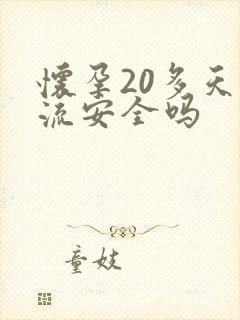 懷孕20多天
流安全嗎
童妓